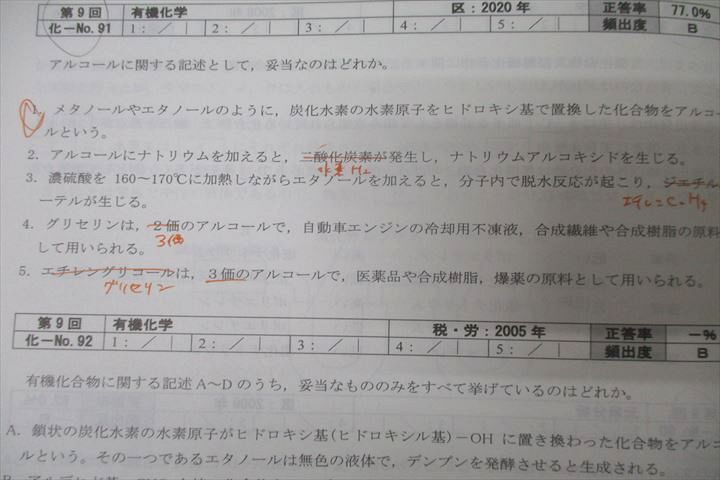 第9回 有機化学 区：2020年 正答率 77.0%
化－No.91 1：／ 2：／ 3：／ 4：／ 5：／ 頻出度 B
アルコールに関する記述として，妥当なのはどれか。
1．メタノールやエタノールのように，炭化水素の水素原子をヒドロキシ基で置換した化合物をアルコー
ルという。
2．アルコールにナトリウムを加えると，二酸化炭素が発生し，ナトリウムアルコキシドを生じる。
水素 H2
3．濃硫酸を 160～170℃に加熱しながらエタノールを加えると，分子内で脱水反応が起こり，ジエチル
ーテルが生じる。
エチレン C2H4
4．グリセリンは，２価のアルコールで，自動車エンジンの冷却用不凍液，合成繊維や合成樹脂の原料
3価
して用いられる。
5．エチレングリコールは，３価のアルコールで，医薬品や合成樹脂，爆薬の原料として用いられる。
グリセリン
第9回 有機化学 税・労：2005年 正答率 －%
化－No.92 1：／ 2：／ 3：／ 4：／ 5：／ 頻出度 B
有機化合物に関する記述A～Dのうち，妥当なもののみをすべて挙げているのはどれか。
A．鎖状の炭化水素の水素原子がヒドロキシ基(ヒドロキシル基)－OH に置き換わった化合物をアルコ
ルという。その一つであるエタノールは無色の液体で，デンプンを発酵させると生成される。